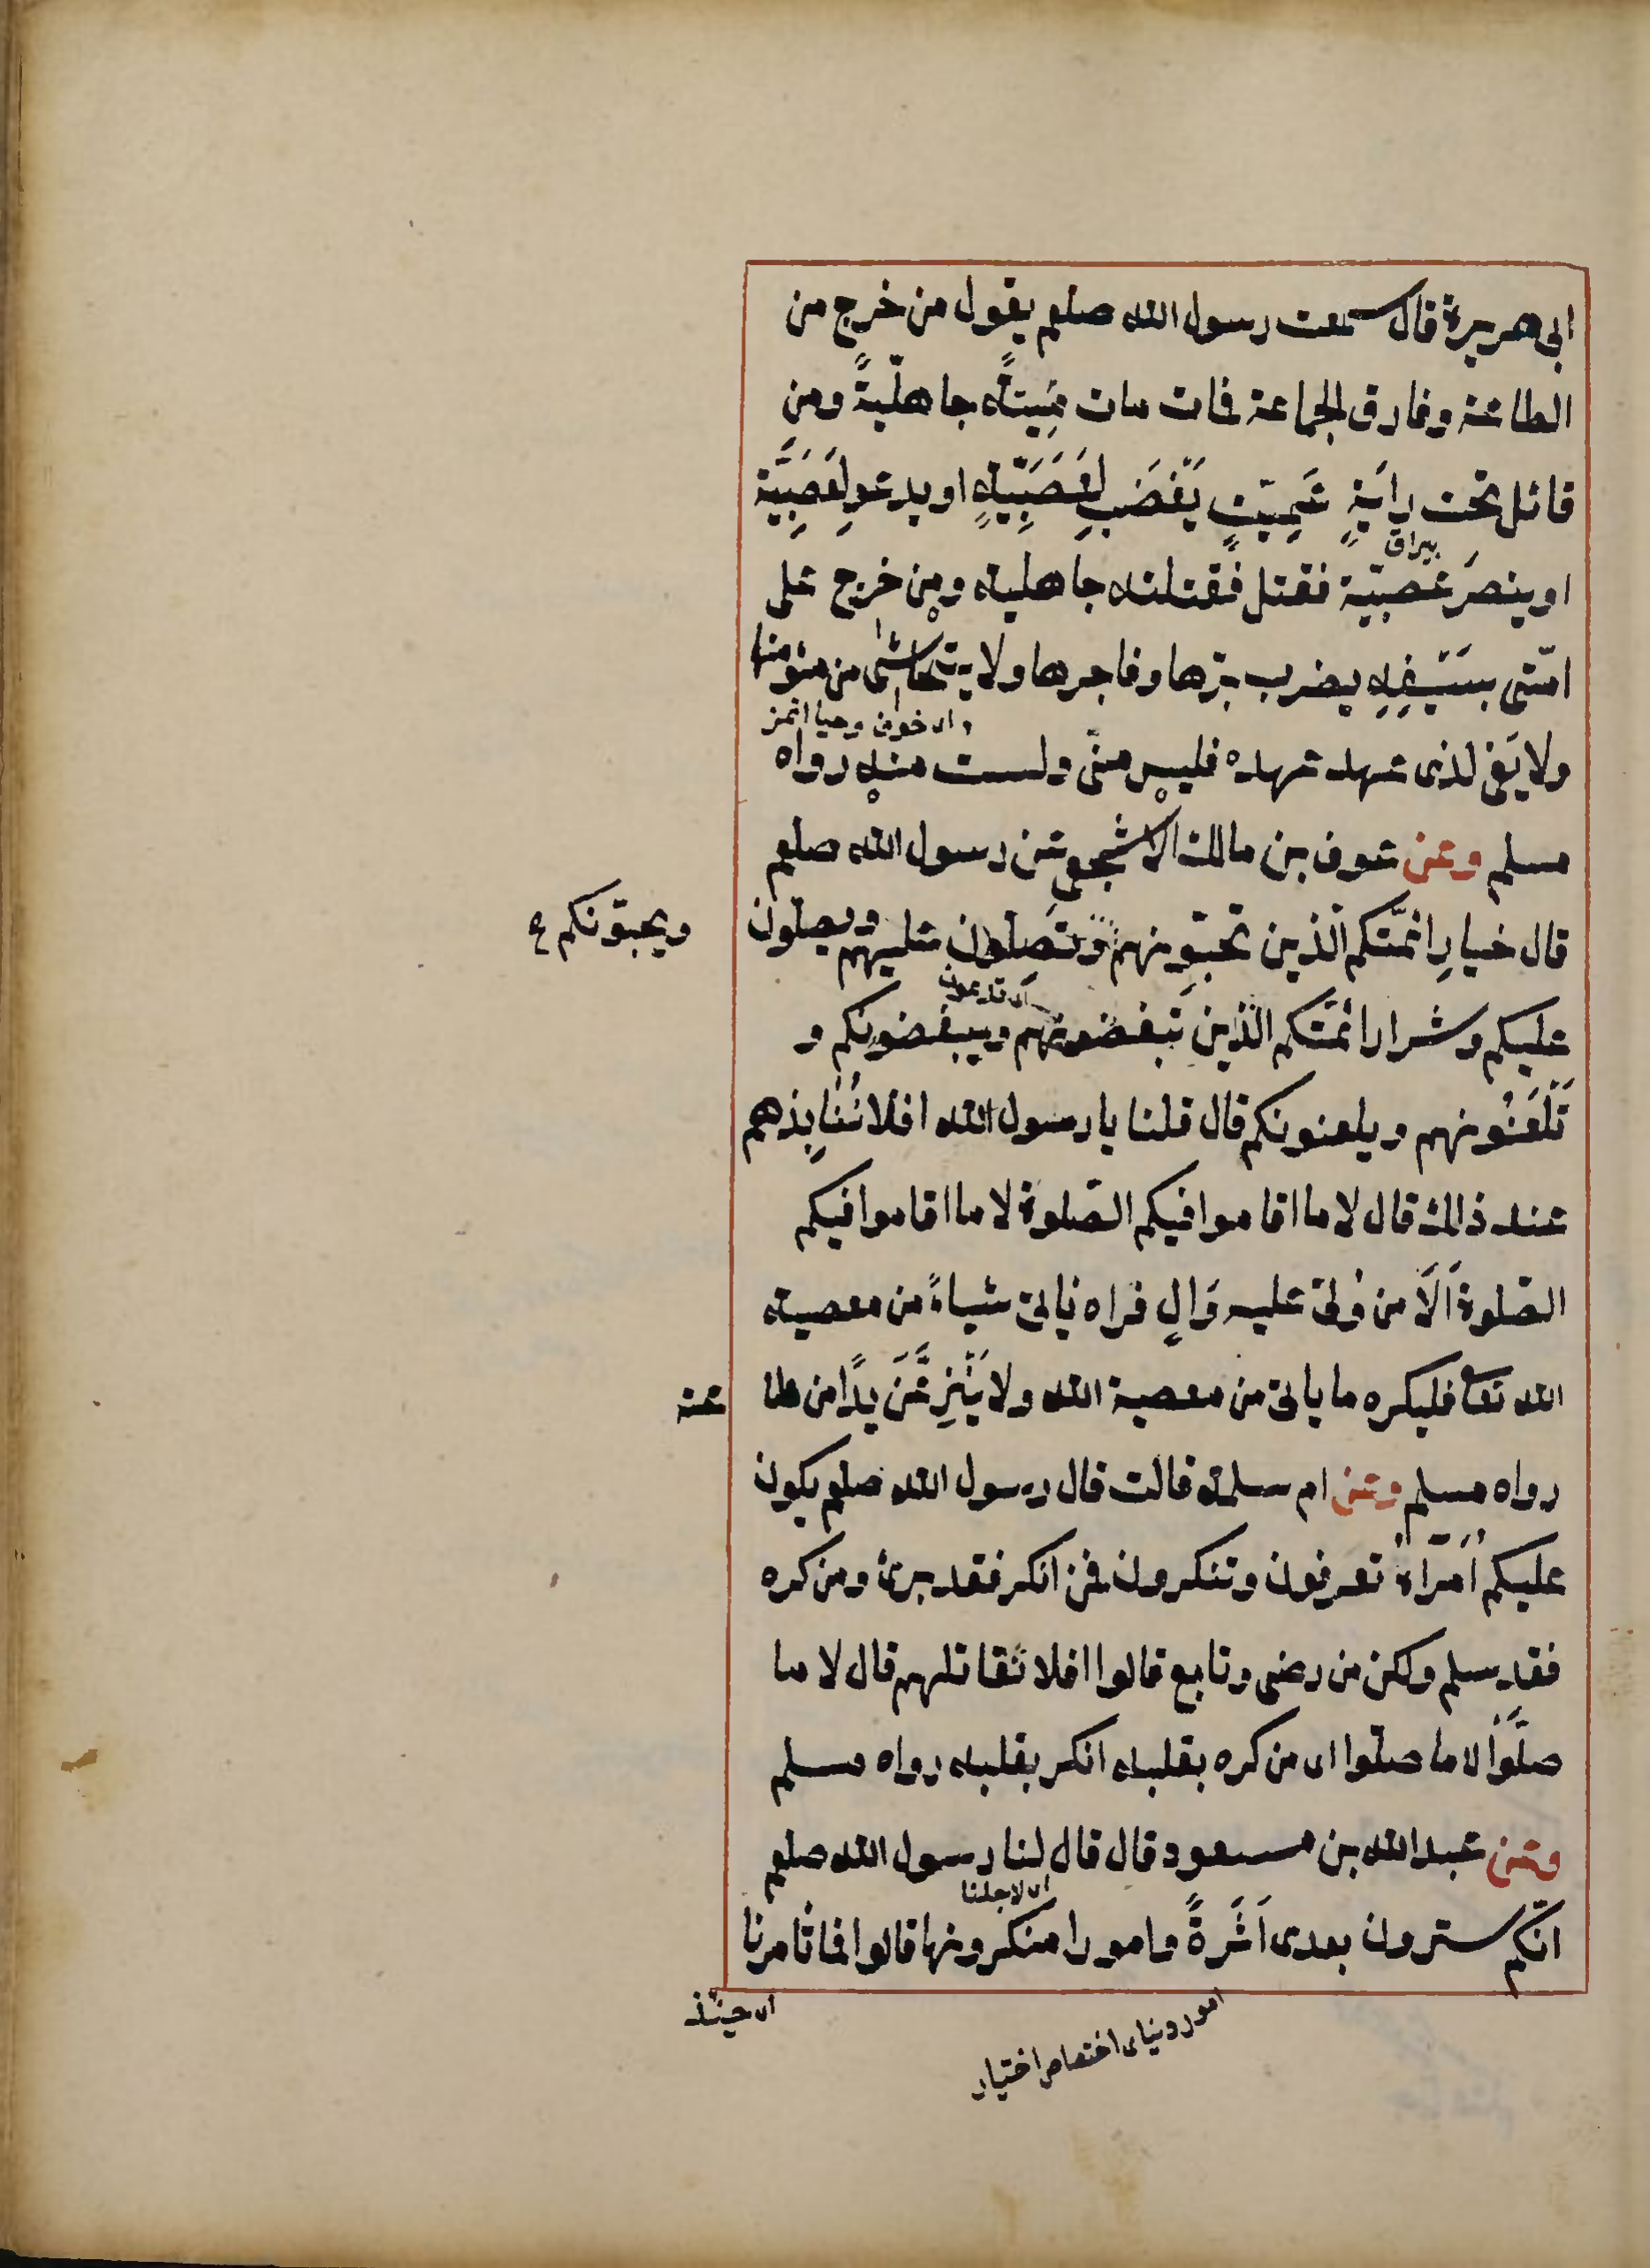 ابى هريرة قال سمعت رسول الله صلعم يقول من خرج من
الطاعة وفارق الجماعة فمات مات مِيتةً جاهليّةً ومن
قاتل تحت رايَةٍ عَمِيّتٍ يَغْضَب لِعَصَبِيّةٍ او يدعو لِعَصَبِيَّة
بيراق
او ينصرَ عَصَبيّة فقتل فقتلته جاهلية ومن خرج على
امّتى بسَيْفِهِ يضرب برّها وفاجرها ولا يتحاشى من مئومنها
ولا يَفى لذى عهد عهده فليس منّى ولست منه رواه
مسلم وعن عوف بن مالك الاشجعى عن رسول الله صلعم
قال خيار ائمّتكم الّذين تحبّونهم وتصلون عليهم ويصلون
ويحبّونكم ع
اى تدعون
عليكم وشرار ائمّتكم الّذين تبغضونهم ويبغضونكم و
تَلْعَنُونهم ويلعنونكم قال قلنا يا رسول الله افلا نُنابِذهم
عند ذالك قال لا ما اقاموا فيكم الصّلوة لا ما اقاموا فيكم
الصّلوة اَلَا من وُلّى عليه وَالٍ فراه يأتى شياءً من معصية
الله تعا فليكره ما ياتى من معصية الله ولا يَنْزِعَنَّ يدًا من طا
عة
رواه مسلم وعن ام سلمة قالت قال رسول الله صلعم يكون
عليكم اُمَرَاءُ تعرفون وتنكرون فمن انكر فقد برئ ومن كره
فقد سلم ولكن من رضى وتابع قالوا افلا نقاتلهم قال لا ما
صلَّوْا لا ما صلّوا اى من كره بقلبه انكر بقلبه رواه مسلم
وعن عبد الله بن مسعود قال قال لنا رسول الله صلعم
اى لاجلنا
انّكم سترون بعدى اَثَرَةً وامورا منكرونها قالوا فما تأمرنا
اى حينئذ
امور دنياى اختصاص اختيار